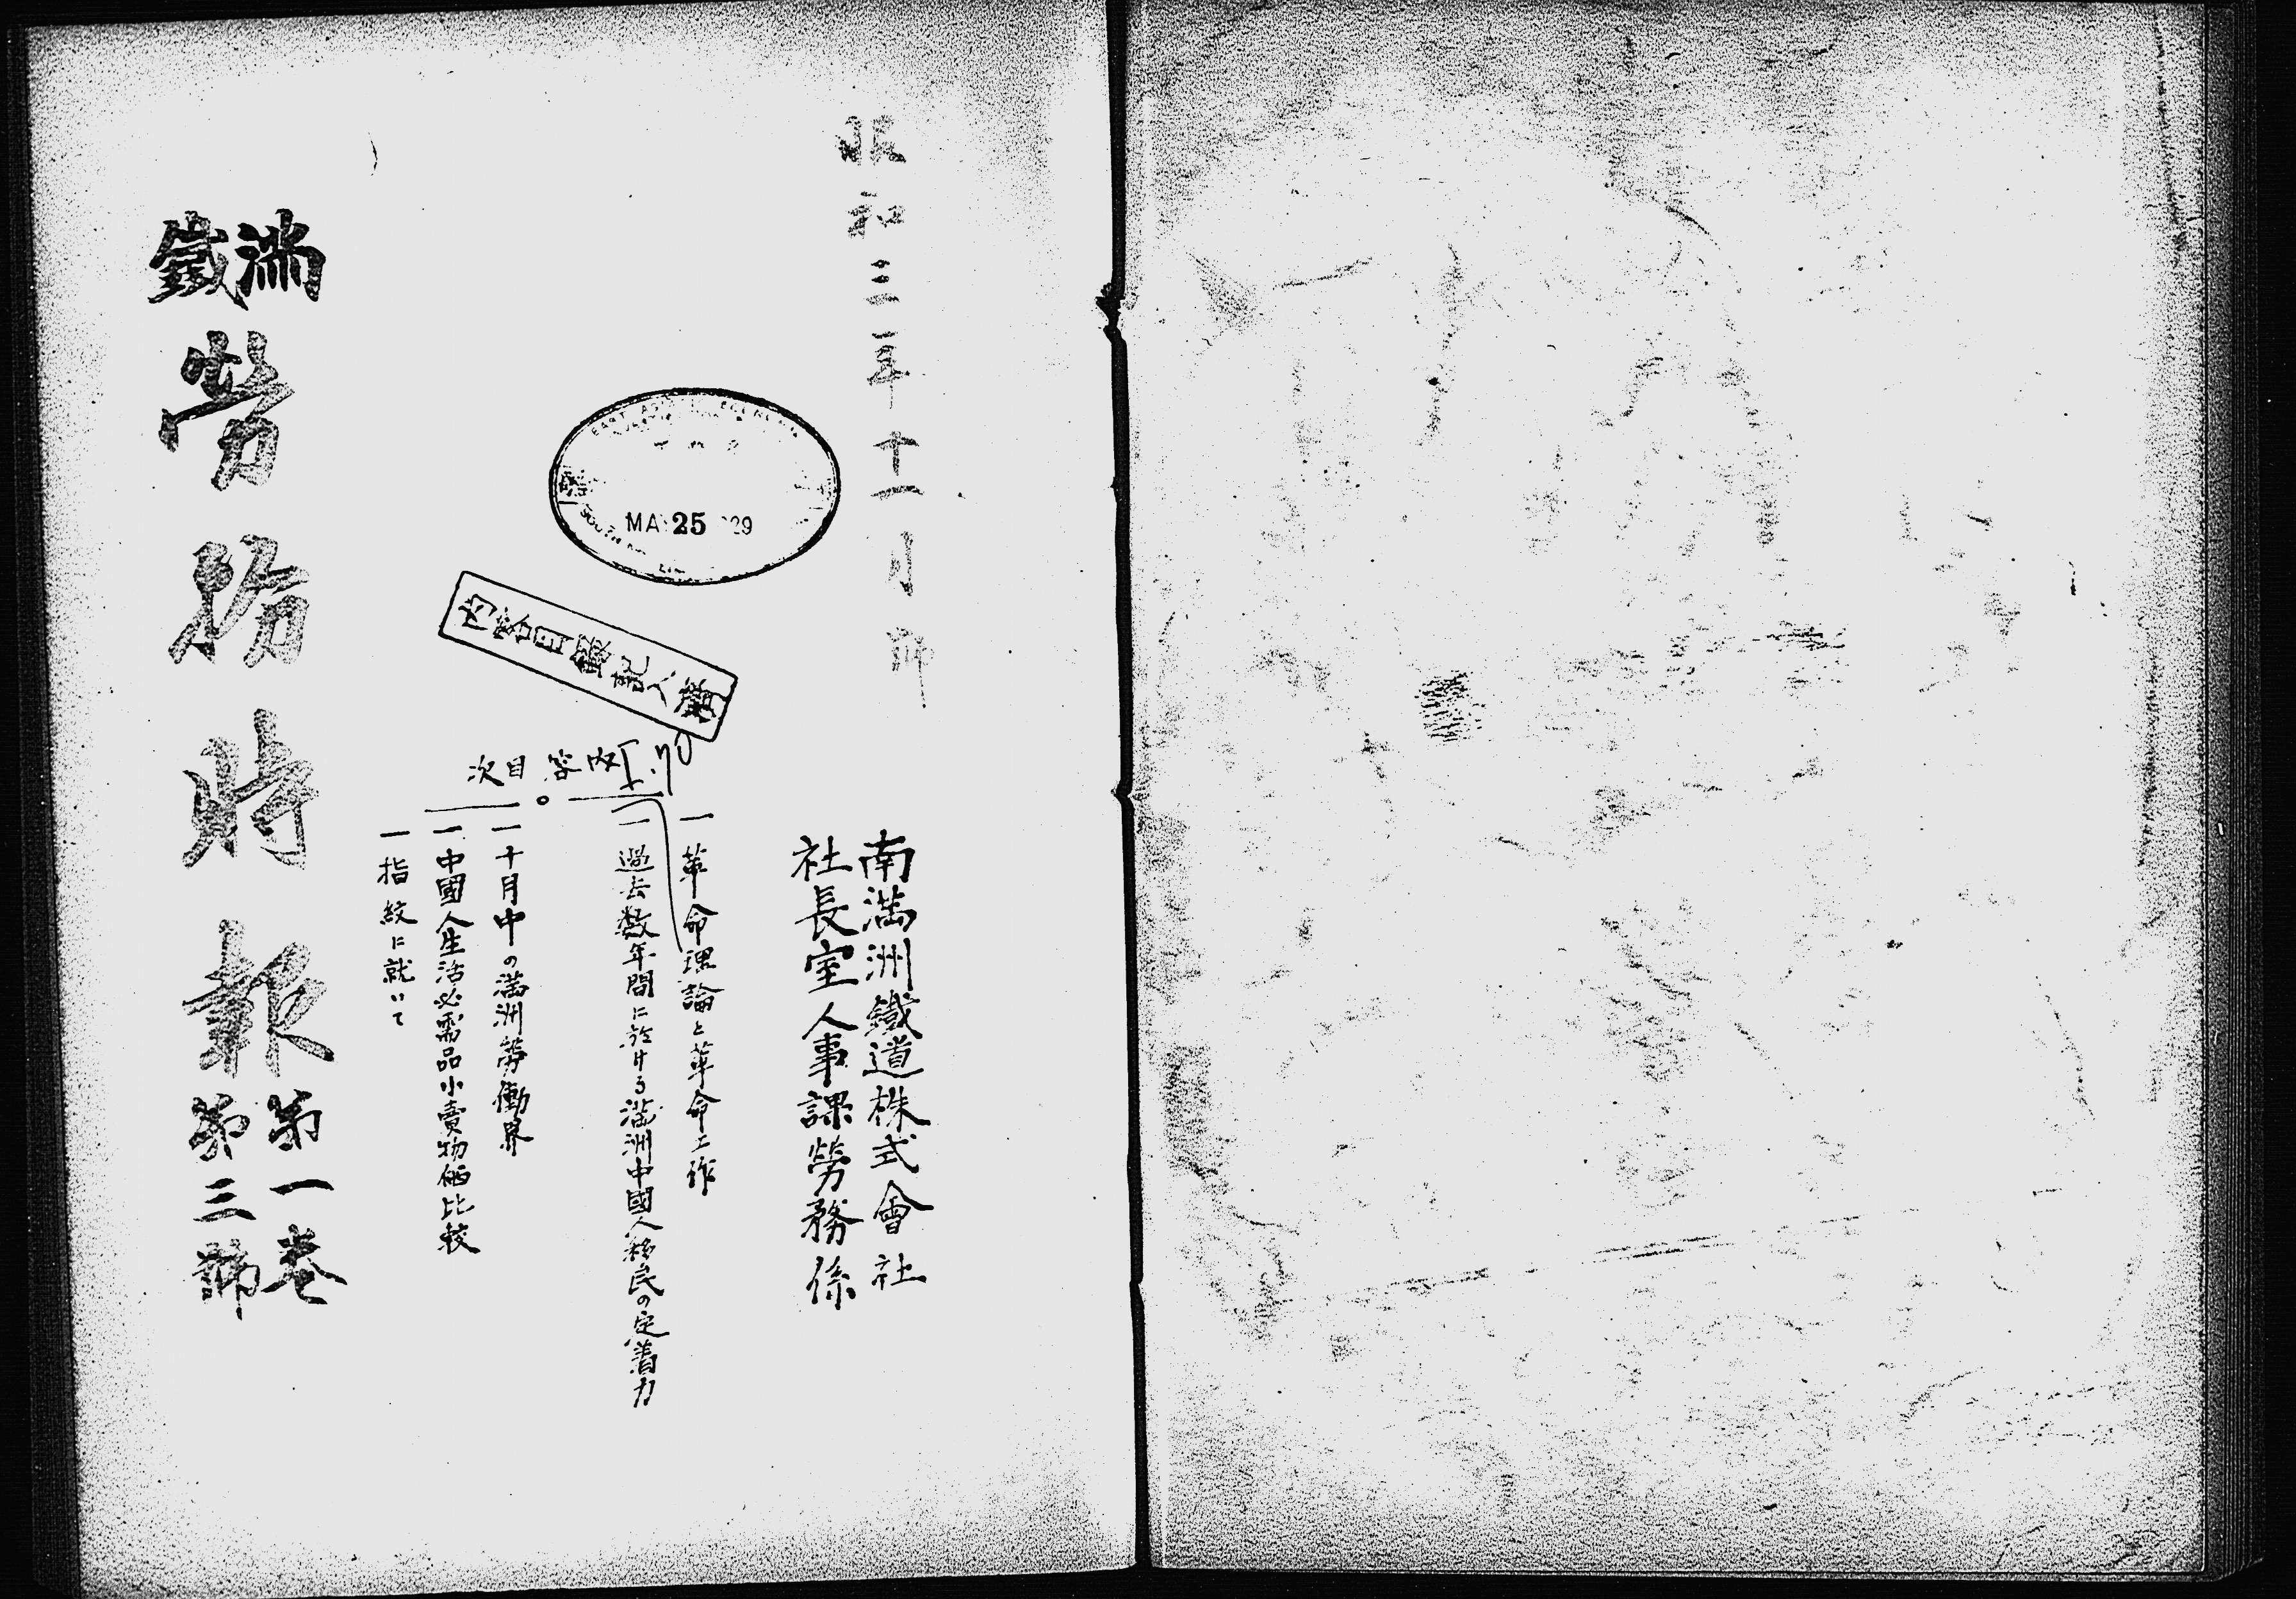 昭和三年十一月
南滿洲鐵道株式會社
社長室人事課勞務係
MA 25 29
内容目錄記入濟
内容目次
一革命理論と革命工作
一過去数年間に於ける滿洲中國人移民の定着力
一十月中の滿洲勞働界
一中國人生活必需品小賣物価比較
一指紋に就いて
滿鐵
勞務時報
第一卷
第三號